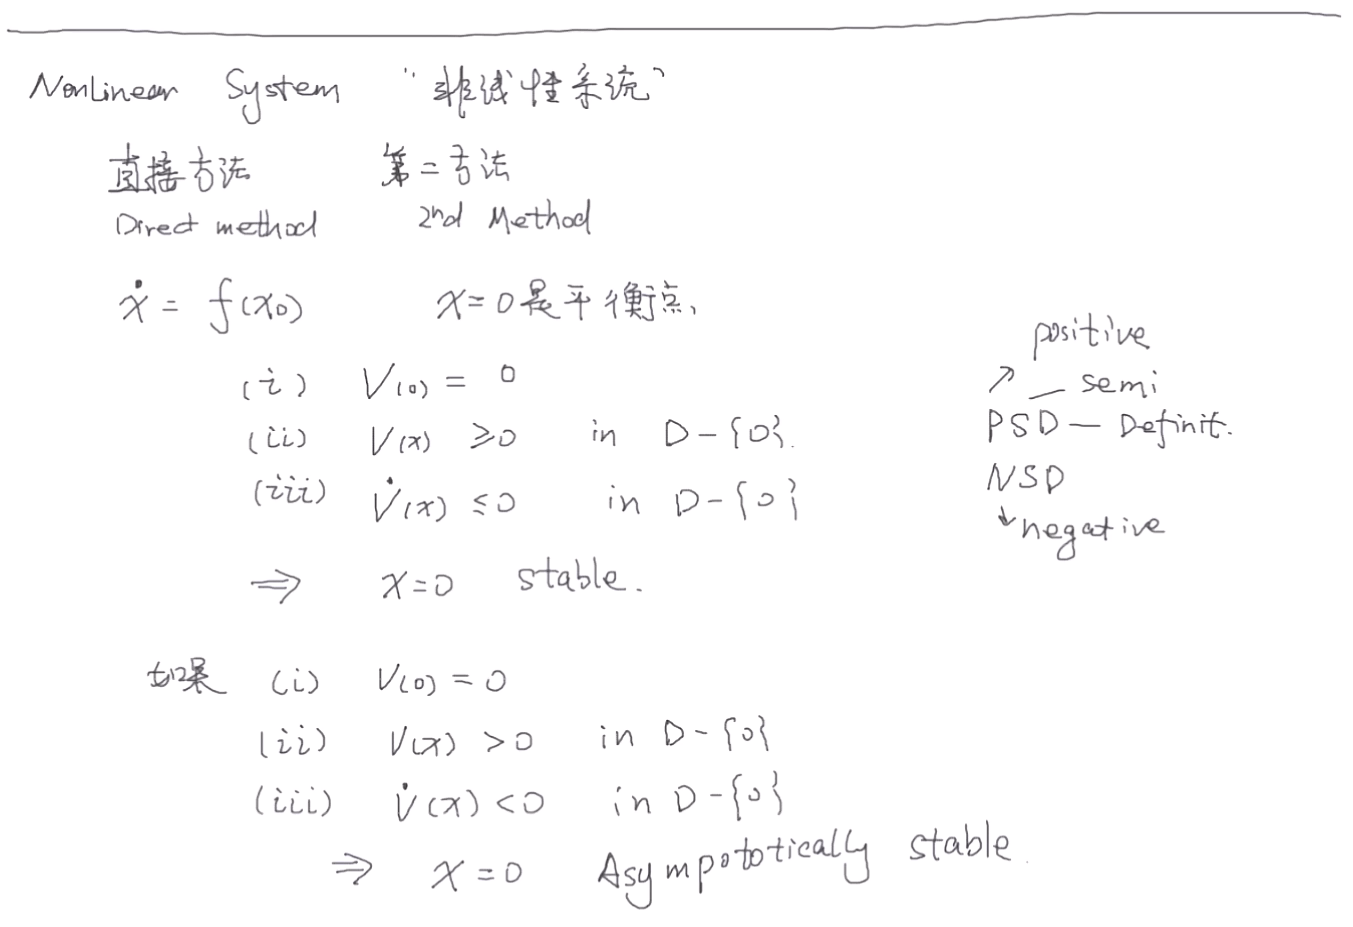 NonLinear System “非线性系统”
直接方法 第二方法
Direct method 2nd Method
ẋ = f(x0) x=0是平衡点,
(i) V(0) = 0
(ii) V(x) ≥0 in D-{0}.
(iii) V̇(x) ≤0 in D-{0}
⇒ x=0 stable.
positive
↗ — semi
PSD — Definit.
NSD
↓ negative
如果 (i) V(0) = 0
(ii) V(x) >0 in D-{0}
(iii) V̇(x) <0 in D-{0}
⇒ x=0 Asympototically stable.